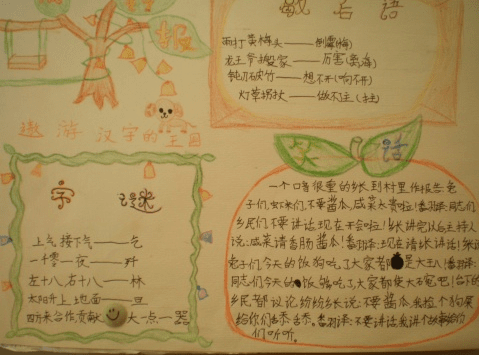 报
歇后语
雨打黄梅头——倒霉(梅)
龙王爷搬家——厉害(离海)
钝刀破竹——想不开(啊开)
灯草拐杖——做不主(拄)
遨游汉字的王国
字谜
上气接下气——乞
一千零一夜——歼
左十八右十八——林
太阳升上地面——旦
四方来合作贡献大一点——器
笑话
一个口音很重的乡长到村里作报告兔
子们,虾米们,不要酱瓜,咸菜太贵啦!(翻译:同志们
乡民们不要讲话现在开会啦!)乡长讲完以后主持人
说:咸菜请香肠酱瓜!(翻译:现在请乡长讲话!)乡长
兔子们今天的饭狗吃了大家都是大王八!(翻译:
同志们今天的饭够吃了大家都使大碗吧!)台下的
乡民都议论纷纷乡长说:不要酱瓜我捡个狗屎
给你们舔舔。(翻译:不要讲话我讲个故事给你
们听听。